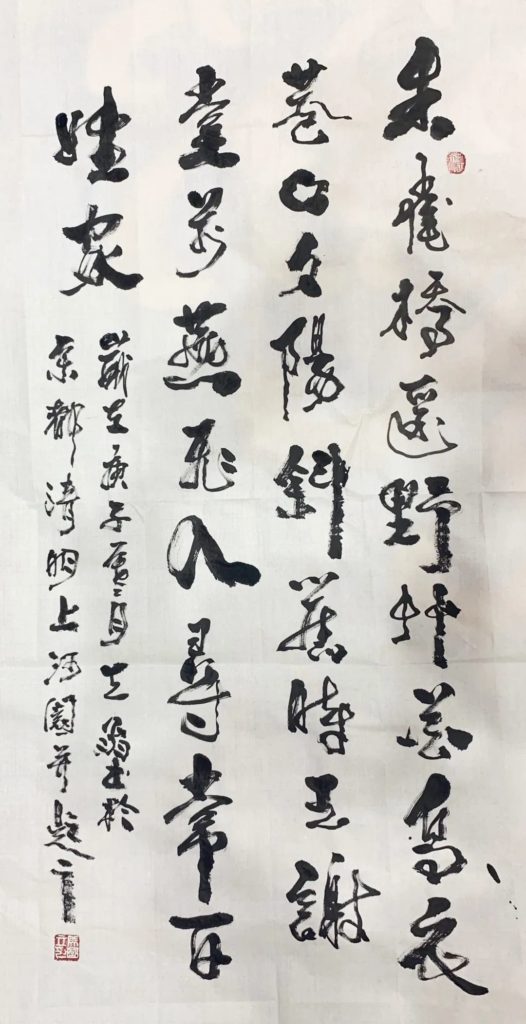 朱雀橋邊野艸花烏衣
巷口夕陽斜舊時王謝
堂前燕飛入尋常百
姓家
歲在庚子夏月立書於
京都清明上河園並題